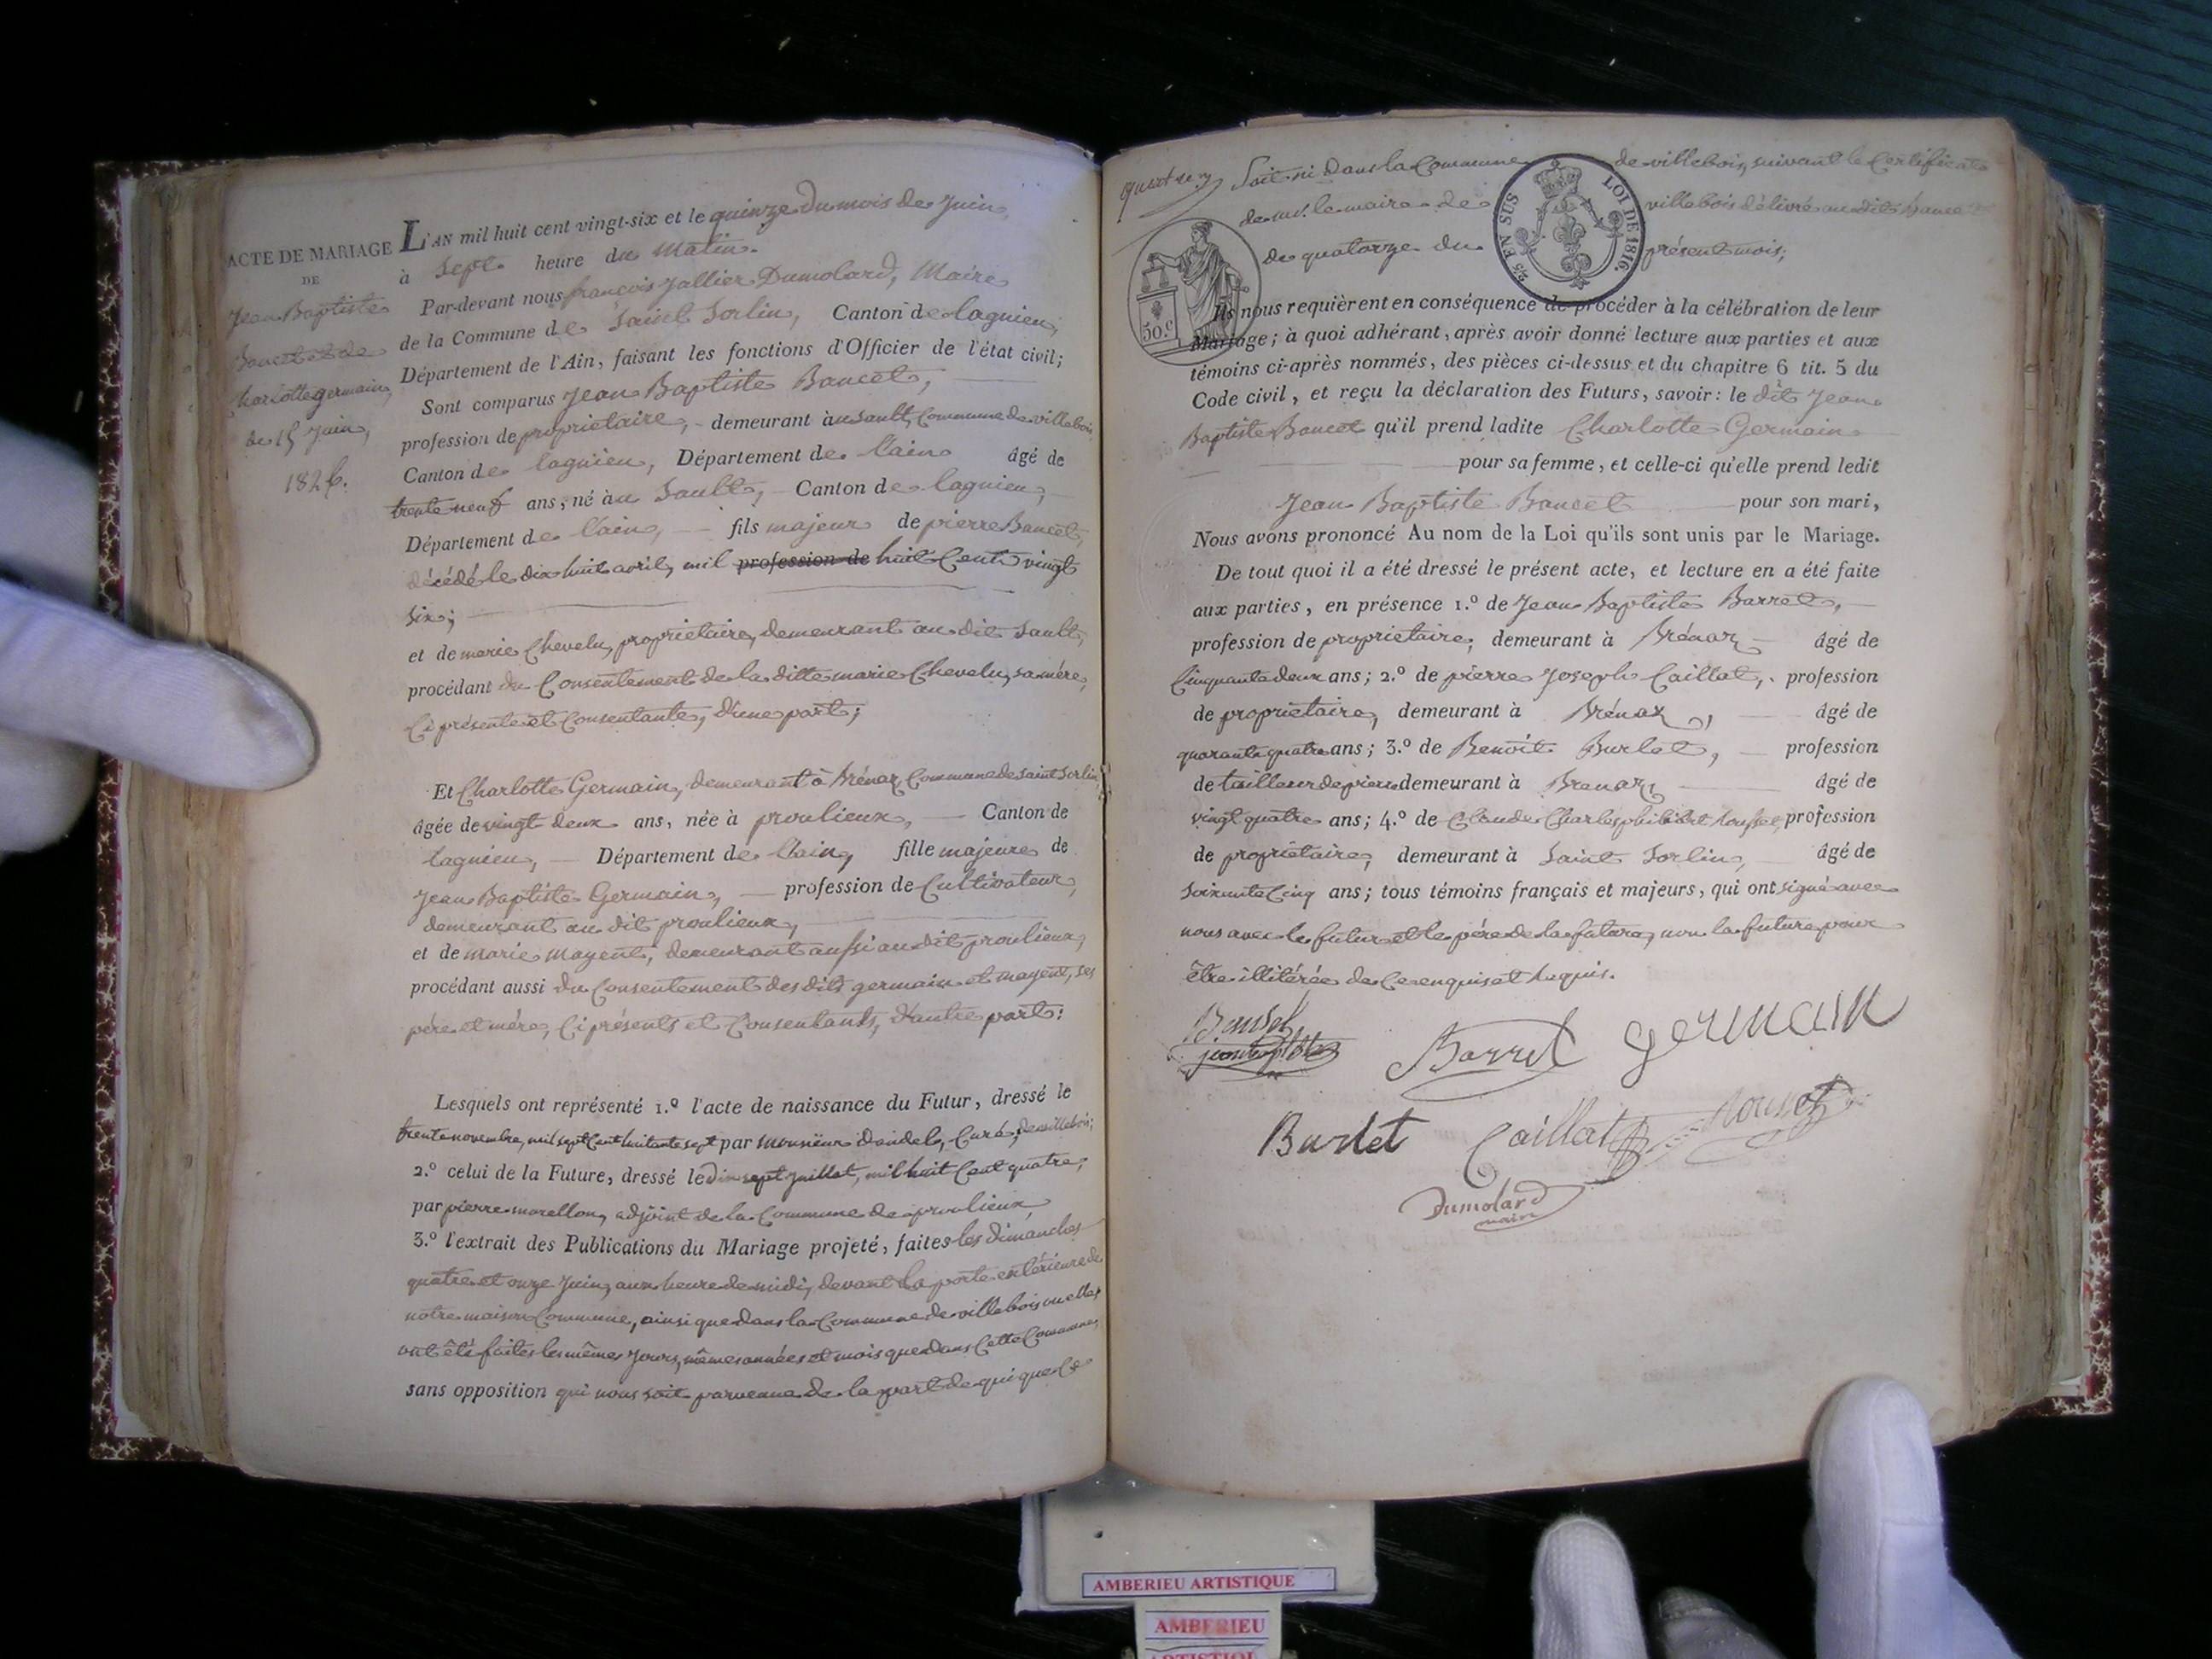 ACTE DE MARIAGE
DE
Jean Baptiste
Bancet et de
Charlotte germain,
du 15 Juin,
1826.
L'AN mil huit cent vingt-six et le quinze du mois de Juin,
à sept heure du matin.
Par-devant nous françois Jallier Dumolard, Maire
de la Commune de Saint Sorlin, Canton de lagnieu,
Département de l'Ain, faisant les fonctions d'Officier de l'état civil;
Sont comparus Jean Baptiste Bancet,
profession de propriétaire, demeurant au Sault, Commune de villebois,
Canton de lagnieu, Département de l'ain âgé de
trente neuf ans, né au Sault, Canton de lagnieu,
Département de l'ain, fils majeur de pierre Bancet,
décédé le dix huit avril, mil profession de huit Cent vingt
six;
et de marie Chevelu, propriétaire, demeurant au dit Sault,
procédant du Consentement de la ditte marie Chevelu, sa mère,
Ci présente et Consentante, d'une part;
Et Charlotte Germain, demeurant à Brénaz, Commune de saint Sorlin,
âgée de vingt deux ans, née à proulieux, Canton de
lagnieu, Département de l'ain, fille majeure de
Jean Baptiste Germain, profession de Cultivateur,
demeurant au dit proulieux,
et de marie mayent, demeurant aussi au dit proulieux,
procédant aussi du Consentement des dits germain et mayent, ses
père et mère, Ci présents et Consentants, d'autre part:
Lesquels ont représenté 1.º l'acte de naissance du Futur, dressé le
trente novembre, mil sept Cent huitante sept par monsieur Curé, de villebois;
2.º celui de la Future, dressé le Dix sept Juillet, mil huit Cent quatre,
par pierre morellon, adjoint de la Commune de proulieux,
3.º l'extrait des Publications du Mariage projeté, faites les dimanches
quatre et onze Juin, aux heure de midi, devant la porte extérieure de
notre maison Commune, ainsi que dans la Commune de villebois ou elles
ont été faites les mêmes Jours, mêmes années et mois que dans Cette Commune,
sans opposition qui nous soit parvenue de la part de qui que Ce
Soit ni dans la Commune de villebois, suivant le Certificat
de mr. le maire de villebois délivré au dit Bancet
de quatorze du présent mois;
2/5 EN SUS LOI DE 1816.
50.c
Ils nous requièrent en conséquence de procéder à la célébration de leur
Mariage; à quoi adhérant, après avoir donné lecture aux parties et aux
témoins ci-après nommés, des pièces ci-dessus et du chapitre 6 tit. 5 du
Code civil, et reçu la déclaration des Futurs, savoir: le dit Jean
Baptiste Bancet qu'il prend ladite Charlotte Germain
pour sa femme, et celle-ci qu'elle prend ledit
Jean Baptiste Bancet pour son mari,
Nous avons prononcé Au nom de la Loi qu'ils sont unis par le Mariage.
De tout quoi il a été dressé le présent acte, et lecture en a été faite
aux parties, en présence 1.º de Jean Baptiste Barret,
profession de propriétaire, demeurant à Brénaz âgé de
Cinquante deux ans; 2.º de pierre Joseph Caillat, profession
de propriétaire, demeurant à Brénaz, âgé de
quarante quatre ans; 3.º de Benoit Burlet, profession
de tailleur de pierre demeurant à Brenaz, âgé de
vingt quatre ans; 4.º de Claude Charles philibert rousset, profession
de propriétaire, demeurant à Saint Sorlin, âgé de
soixante Cinq ans; tous témoins français et majeurs, qui ont signé avec
nous avec le futur et le père de la future, non la future pour
être illitérée de Ce enquis et requis.
Bansel
jean baptiste
Barret
germain
Burlet
Caillat
rousset
Dumolard
maire
AMBERIEU ARTISTIQUE
AMBERIEU
ARTISTIQUE